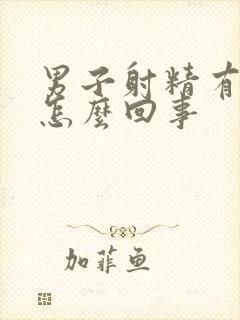 男子射精有
怎麼回事
加菲鱼